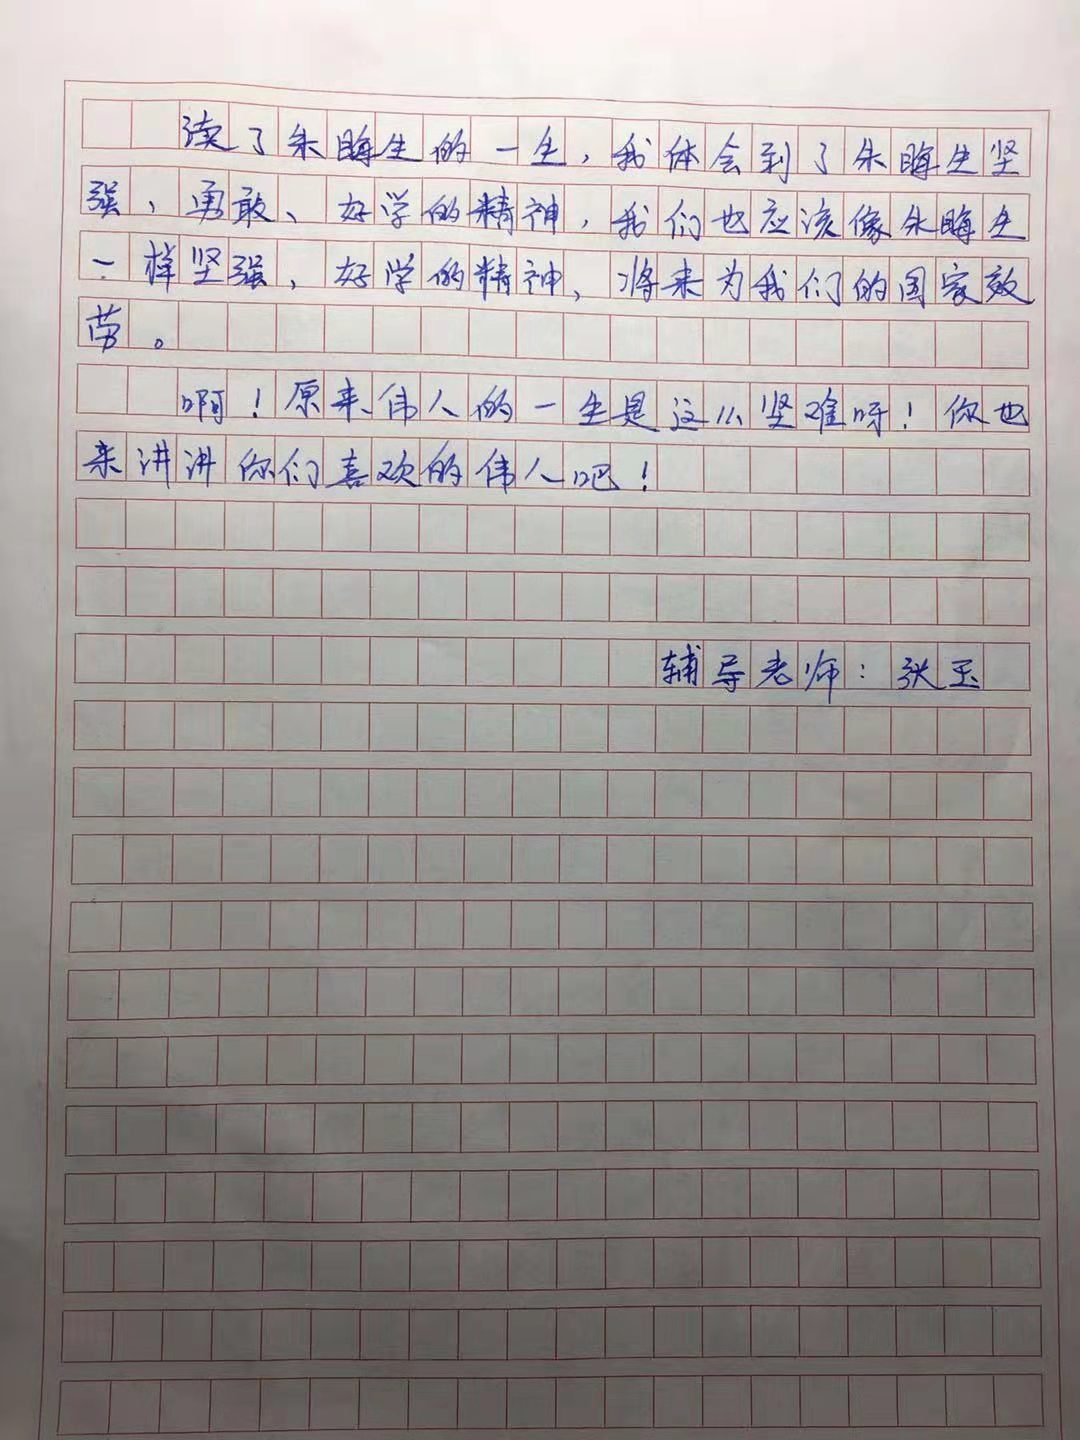 读了朱晦生的一生,我体会到了朱晦生坚
强、勇敢、好学的精神,我们也应该像朱晦生
一样坚强、好学的精神,将来为我们的国家效
劳。
啊!原来伟人的一生是这么坚难呀!你也
来讲讲你们喜欢的伟人吧!
辅导老师:张玉